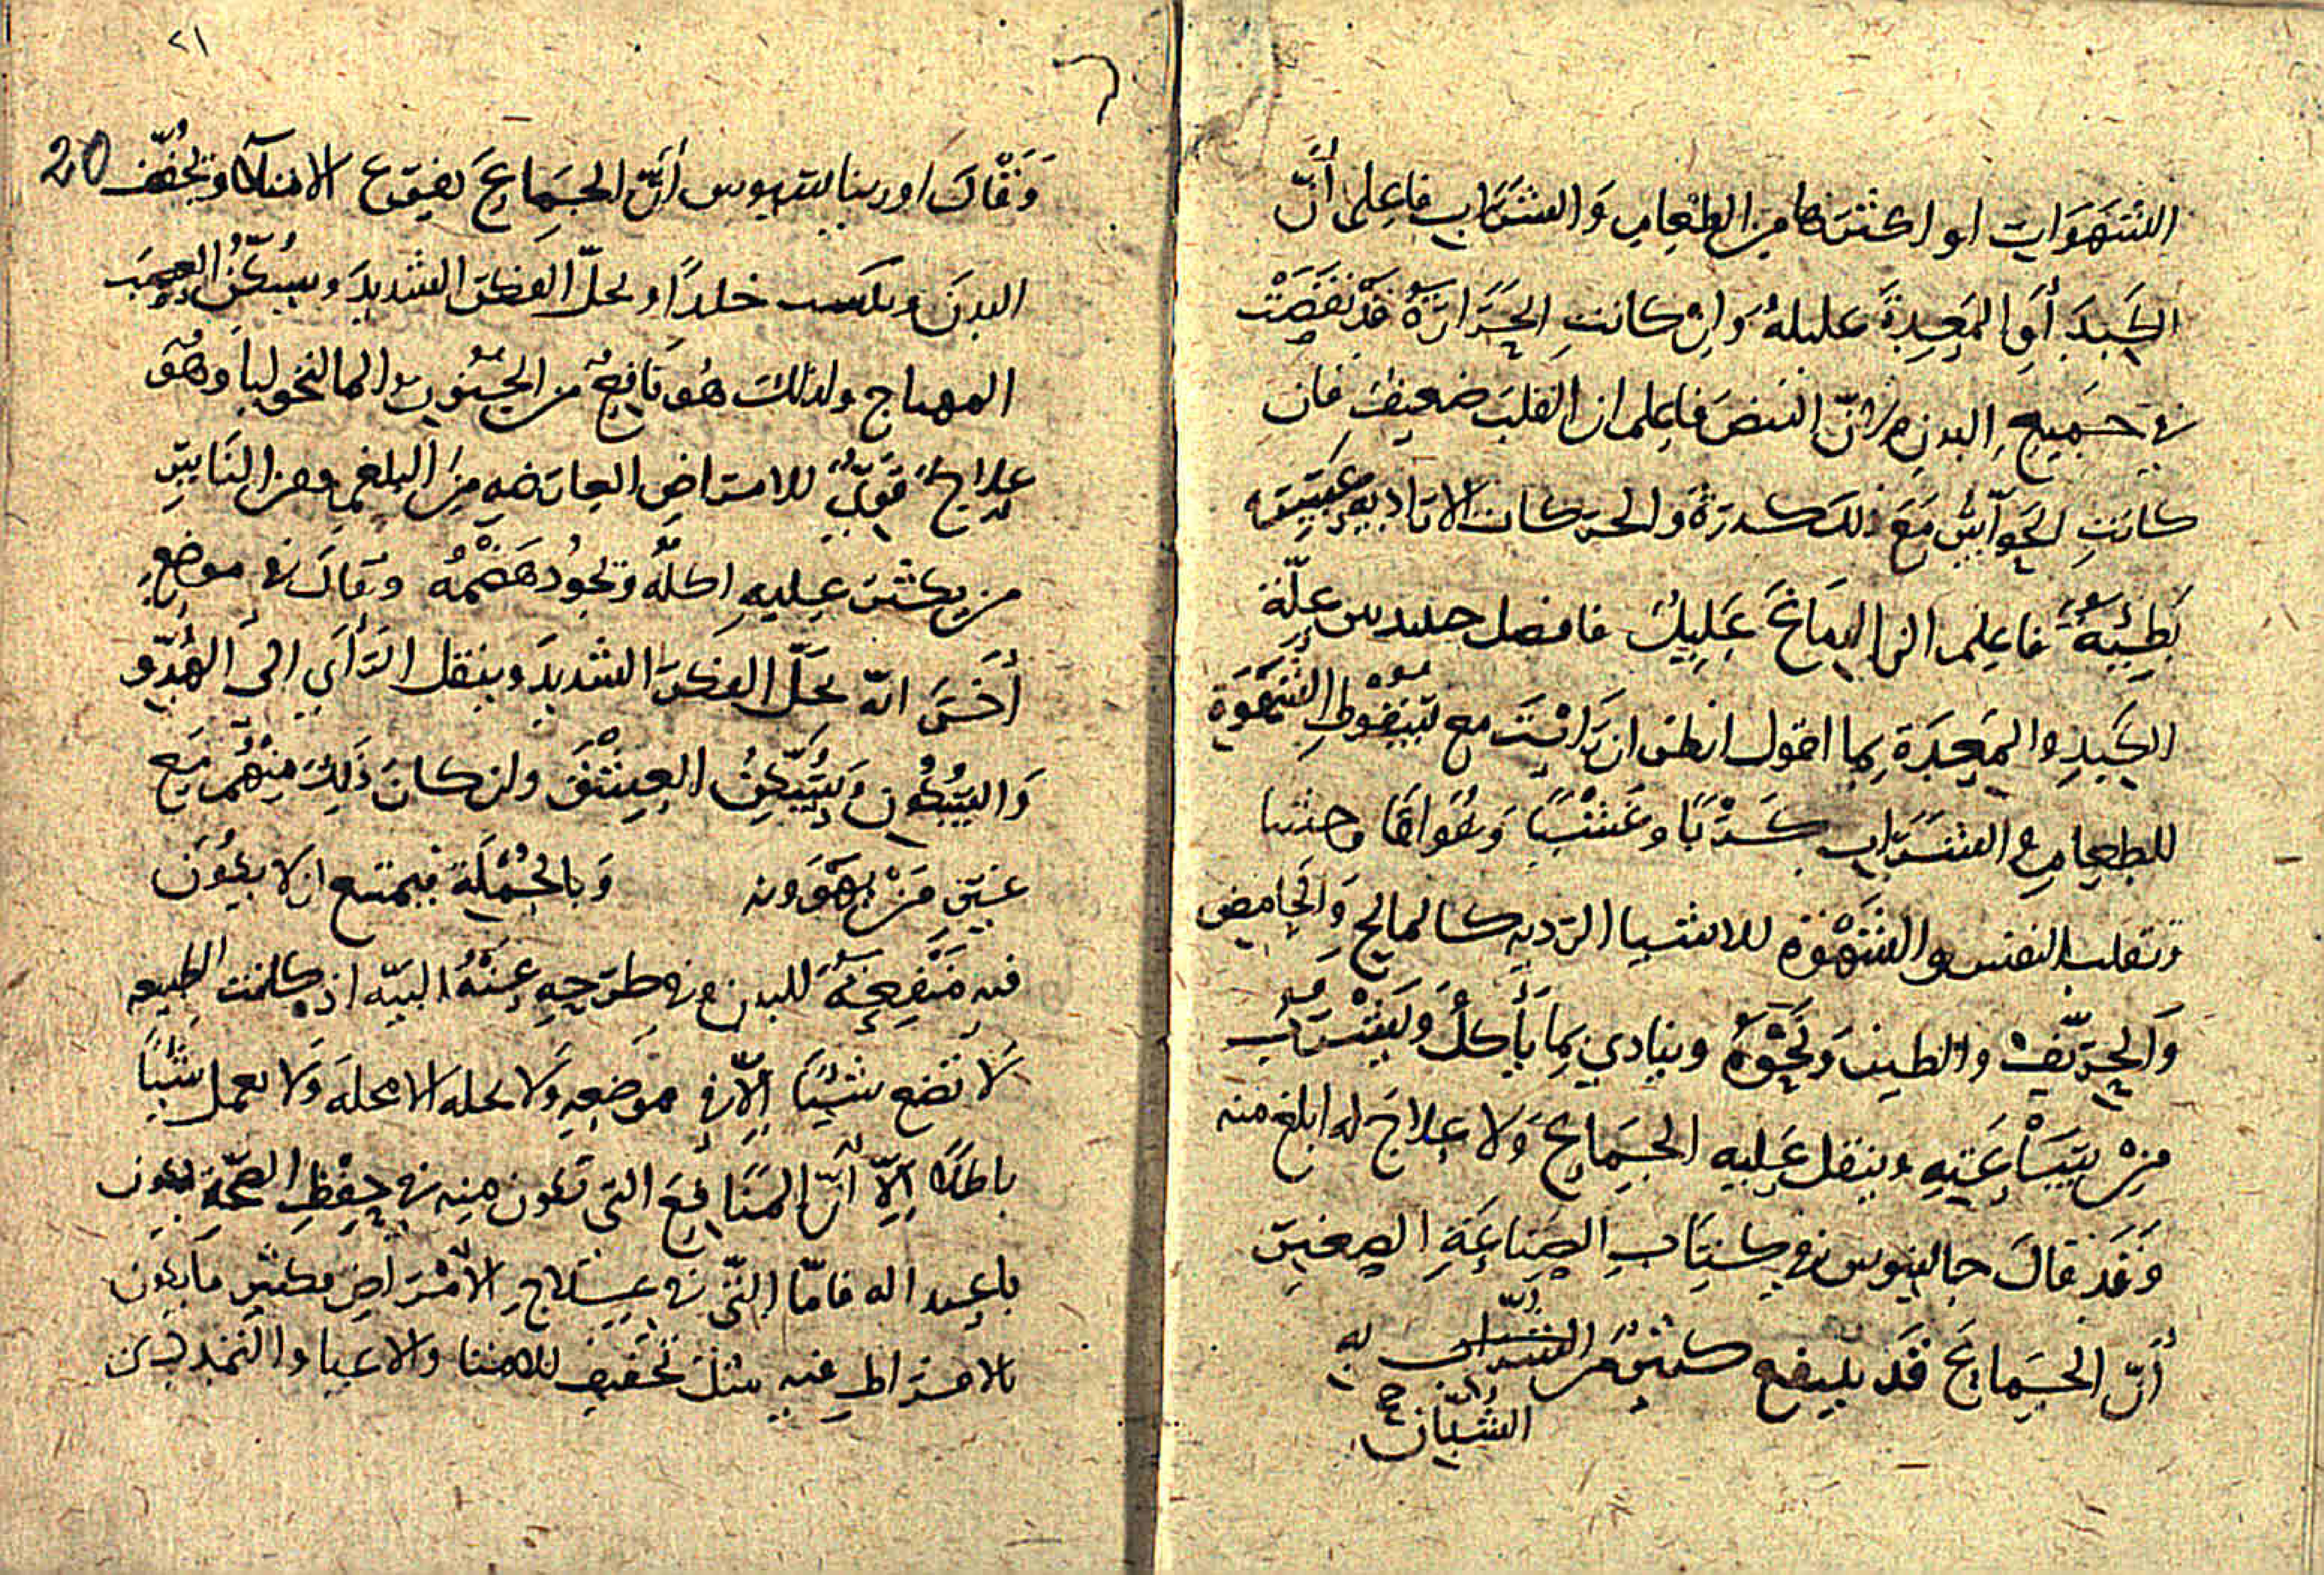 الشهوات او اكثرها من الطعام والشراب فاعلم أنّ
الكبد أو المعدة عليلة وان كانت الحرارة قد نقصت
في جميع البدن من النبض فاعلم ان القلب ضعيف فان
كانت الحواسّ مع ذلك كدرة والحركات الارادية
بطيئة فاعلم ان الدماغ عليل فافصل علّة
الكبد والمعدة بما اقول انظر ان رأيت مع سقوط الشهوة
للطعام والشراب كربا وغشيا وفواقا
وتقلب النفس والشهوة للاشيا الرديه كالمالح والحامض
والحرّيف والطين ونحوه ويتاذي بما يأكل ويشرب
من ساعته ويثقل عليه الجماع ولا علاج له ابلغ منه
وقد قال جالينوس في كتاب الصناعة الصغير
أنّ الجماع قد ينفع كثير من الشباب به
الشبّان صح
٢١
20
وقال اوريباسيوس أنّ الجماع يفرّغ الامتلا ويخفّف
البدن ويكسب جلدا ويحلّ الفكر الشديد ويسكّن الغضب
المهتاج ولذلك هو نافع من الجنون والمالنخوليا وهو
علاج قويّ للامراض العارضه من البلغم ومن الناس
من يكثر عليه اكله وتجود هضمه وقال في موضع
أخر انّه يحلّ الفكر الشديد وينقل الرأي الى الهدّو
والسكون ويسكّن العشق وان كان ذلك منهم مع
غير من يهوونه وبالجملة فيمتنع ان لا يكون
فيه منفعة للبدن وفي طرحه عنه البتّه اذ كانت الطبيعه
لا تضع شيئا الّا في موضعه ولا محله ولا تعمل شيئا
باطلا الّا أنّ المنافع التي تكون منه في حفظ الصحّة يكون
باعتداله فامّا التي في علاج الامراض فكثير ما يكون
بالافراط فيه مثل تخفيف للامتلا والاعيا والتمدد